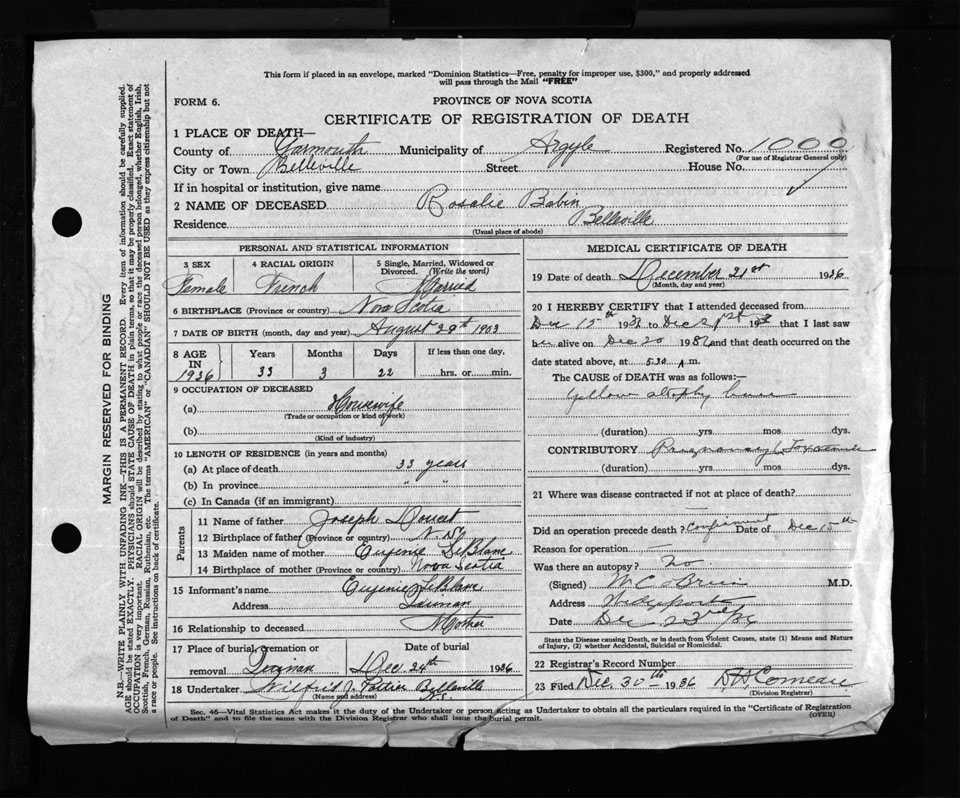 This form if placed in an envelope, marked "Dominion Statistics—Free, penalty for improper use, $300," and properly addressed
will pass through the Mail "FREE"
FORM 6.
PROVINCE OF NOVA SCOTIA
CERTIFICATE OF REGISTRATION OF DEATH
1 PLACE OF DEATH—
County of Yarmouth Municipality of Argyle Registered No. 1000
(For use of Registrar General only)
City or Town Belleville Street House No.
If in hospital or institution, give name
2 NAME OF DECEASED Rosalie Babin
Residence Belleville
(Usual place of abode)
PERSONAL AND STATISTICAL INFORMATION
3 SEX 4 RACIAL ORIGIN 5 Single, Married, Widowed or
Divorced. (Write the word)
Female French Married
6 BIRTHPLACE (Province or country) Nova Scotia
7 DATE OF BIRTH (month, day and year) August 29th 1903
8 AGE IN 1936 Years Months Days If less than one day,
33 3 22 hrs. or min.
9 OCCUPATION OF DECEASED
(a) Housewife
(Trade or occupation or kind of work)
(b)
(Kind of industry)
10 LENGTH OF RESIDENCE (in years and months)
(a) At place of death 33 years
(b) In province " "
(c) In Canada (if an immigrant)
Parents
11 Name of father Joseph Doucet
12 Birthplace of father (Province or country) N. S.
13 Maiden name of mother Eugenie LeBlanc
14 Birthplace of mother (Province or country) Nova Scotia
15 Informant's name Eugenie LeBlanc
Address Quinan
16 Relationship to deceased Mother
17 Place of burial, cremation or Date of burial
removal Quinan Dec. 24th 1936
18 Undertaker Wilfrid J. Pottier Belleville
(Name and address)
MEDICAL CERTIFICATE OF DEATH
19 Date of death December 21st 1936
(Month, day and year)
20 I HEREBY CERTIFY that I attended deceased from
Dec 15th 193 to Dec 21st 193 that I last saw
her alive on Dec 20 193 and that death occurred on the
date stated above, at 5.30 A m.
The CAUSE of DEATH was as follows:—
Yellow atrophy liver
(duration) yrs mos. dys.
CONTRIBUTORY Pregnancy
(duration) yrs. mos. dys.
21 Where was disease contracted if not at place of death?
Did an operation precede death? Confinement Date of Dec 15th
Reason for operation
Was there an autopsy? No.
(Signed) M.D.
Address Wedgeport
Date Dec 23rd/36
State the Disease causing Death, or in death from Violent Causes, state (1) Means and Nature
of Injury, (2) whether Accidental, Suicidal or Homicidal.
22 Registrar's Record Number
23 Filed Dec. 30th 1936 Comeau
(Division Registrar)
Sec. 46—Vital Statistics Act makes it the duty of the Undertaker or person acting as Undertaker to obtain all the particulars required in the "Certificate of Registration
of Death" and to file the same with the Division Registrar who shall issue the burial permit.
(OVER)
MARGIN RESERVED FOR BINDING
N.B.—WRITE PLAINLY WITH UNFADING INK—THIS IS A PERMANENT RECORD. Every item of information should be carefully supplied.
AGE should be stated EXACTLY. PHYSICIANS should STATE CAUSE OF DEATH in plain terms, so that it may be properly classified. Exact statement of
OCCUPATION is very important. RACIAL ORIGIN will be described by stating to what people or race the deceased person belonged, whether English, Irish,
Scottish, French, German, Russian, Ruthenian, etc. The terms "AMERICAN" or "CANADIAN" SHOULD NOT BE USED as they express citizenship but not
a race or people. See instructions on back of certificate.